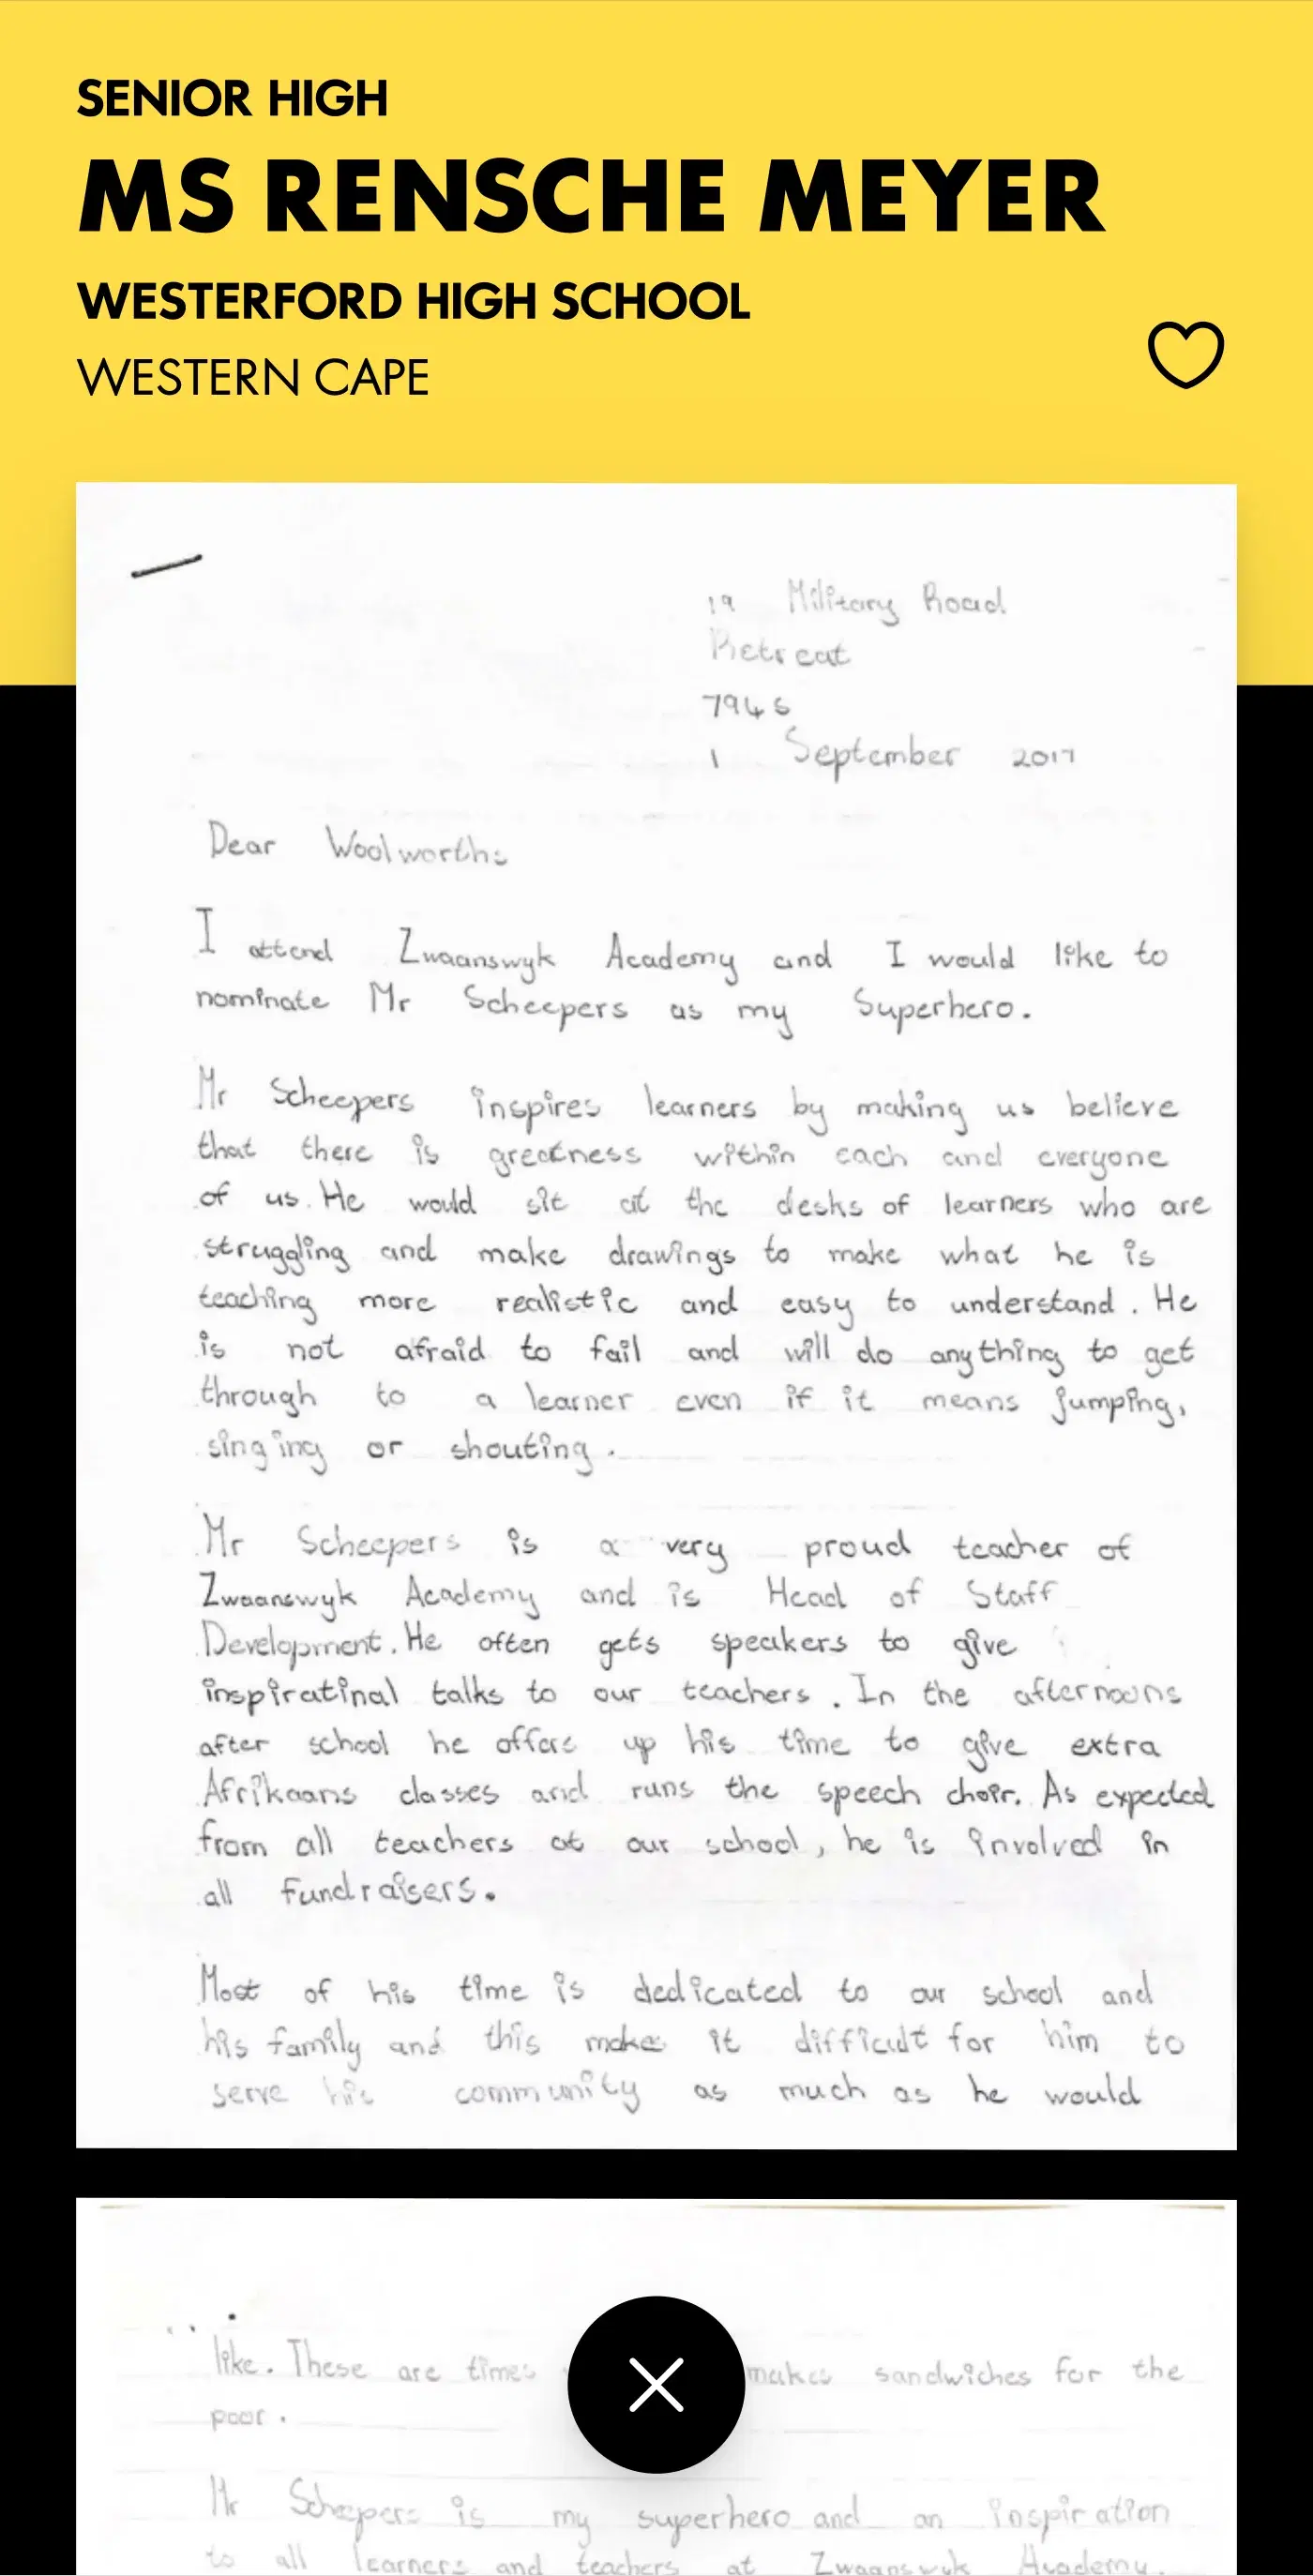 SENIOR HIGH
MS RENSCHE MEYER
WESTERFORD HIGH SCHOOL
WESTERN CAPE
19 Military Road
Retreat
7945
1 September 2017
Dear Woolworths
I attend Zwaanswyk Academy and I would like to
nominate Mr Scheepers as my Superhero.
Mr Scheepers inspires learners by making us believe
that there is greatness within each and everyone
of us. He would sit at the desks of learners who are
struggling and make drawings to make what he is
teaching more realistic and easy to understand. He
is not afraid to fail and will do anything to get
through to a learner even if it means jumping,
singing or shouting.
Mr Scheepers is a very proud teacher of
Zwaanswyk Academy and is Head of Staff
Development. He often gets speakers to give
inspiratinal talks to our teachers. In the afternoons
after school he offers up his time to give extra
Afrikaans classes and runs the speech choir. As expected
from all teachers at our school, he is involved in
all fundraisers.
Most of his time is dedicated to our school and
his family and this makes it difficult for him to
serve his community as much as he would
like. These are times makes sandwiches for the
poor.
Mr Scheepers is my superhero and an inspiration
to all learners and teachers at Zwaanswyk Academy.